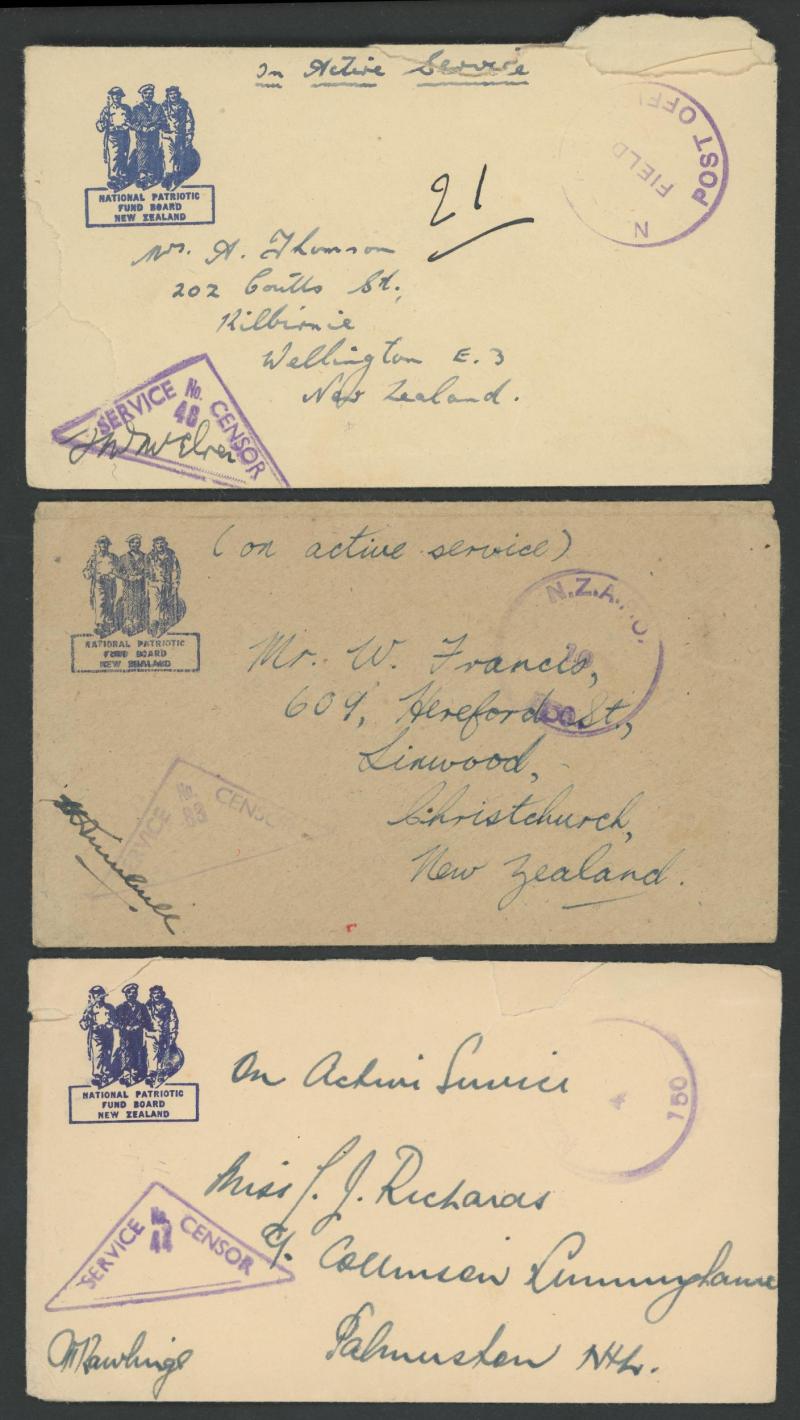 On Active Service
NATIONAL PATRIOTIC
FUND BOARD
NEW ZEALAND
POST OFFI
FIELD
N
21
Mrs. A. Thomson
202 Coutts St.,
Kilbirnie
Wellington E.3
New Zealand.
SERVICE No. 48 CENSOR
(on active service)
NATIONAL PATRIOTIC
FUND BOARD
NEW ZEALAND
N.Z.A.P.O.
150
Mr. W. Francis,
609, Hereford St.,
Linwood,
Christchurch,
New Zealand.
SERVICE No. 83 CENSOR
NATIONAL PATRIOTIC
FUND BOARD
NEW ZEALAND
On Active Service
4
150
Miss J. Richards
c/. Collinson Cunninghame
Palmerston Nth.
SERVICE No. 44 CENSOR
Rawlings